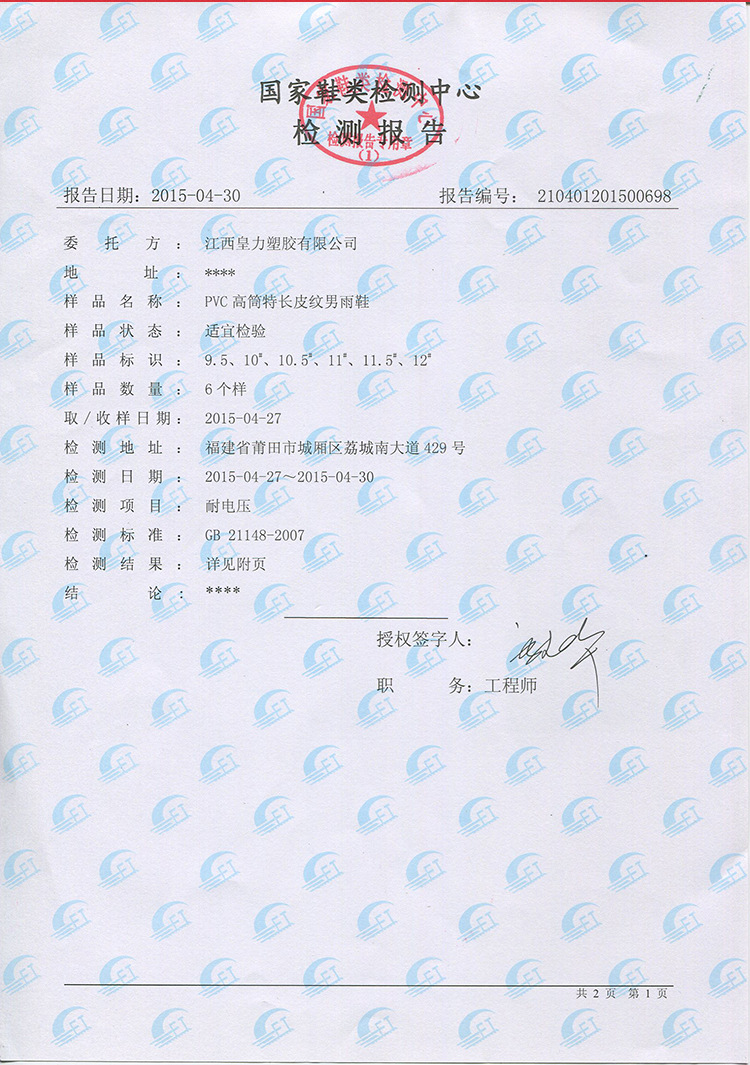 国家鞋类检测中心
检测报告
国家鞋类检测中心
检测报告专用章
(1)
报告日期：2015-04-30 报告编号：210401201500698
委托方：江西皇力塑胶有限公司
地址：****
样品名称：PVC 高筒特长皮纹男雨鞋
样品状态：适宜检验
样品标识：9.5、10#、10.5#、11#、11.5#、12#
样品数量：6个样
取/收样日期：2015-04-27
检测地址：福建省莆田市城厢区荔城南大道 429 号
检测日期：2015-04-27～2015-04-30
检测项目：耐电压
检测标准：GB 21148-2007
检测结果：详见附页
结论：****
授权签字人：
职务：工程师
共 2 页 第 1 页